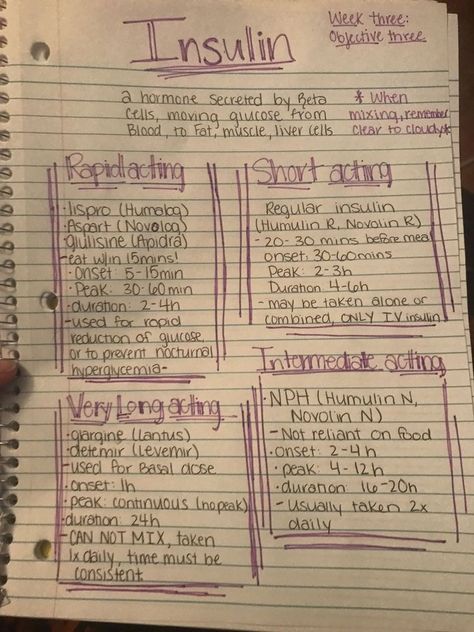 Insulin
Week three:
Objective three
a hormone secreted by Beta
cells, moving glucose from
Blood, to Fat, muscle, liver cells
* When
mixing, remember
clear to cloudy *
Rapid acting
·lispro (Humalog)
Aspart (Novolog)
glulisine (Apidra)
-eat w/in 15mins!
·Onset: 5-15min
·Peak: 30-60min
·duration: 2-4h
-used for rapid
reduction of glucose,
or to prevent nocturnal
hyperglycemia-
Short acting
Regular insulin
(Humulin R, Novolin R)
-20-30 mins before meal
onset: 30-60mins
Peak: 2-3h
Duration 4-6h
-may be taken alone or
combined, ONLY IV insulin
Very Long acting
·glargine (Lantus)
·detemir (Levemir)
-used for Basal dose
·onset: 1h
·peak: continuous (no peak)
·duration: 24h
-CAN NOT MIX, taken
1x daily, time must be
consistent
Intermediate acting
·NPH (Humulin N,
Novolin N)
-Not reliant on food
·onset: 2-4h
·peak: 4-12h
·duration: 16-20h
-usually taken 2x
daily